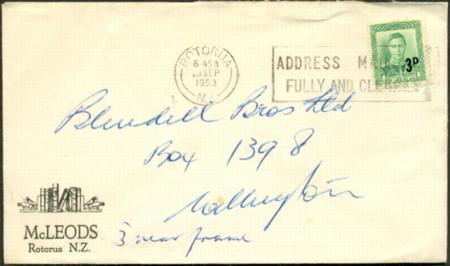 ROTORUA
6 45 A
SEP
1953
N.Z.
ADDRESS MAIL
FULLY AND CLEARLY
3D
Blundell Bros Ltd
Box 1398
Wellington
McLEODS
Rotorua N.Z.
3 near frame